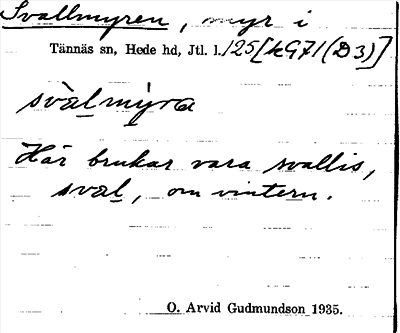 Svallmyren, myr i
Tännäs sn, Hede hd, Jtl. l. 125[kG71(D3)]
svàlmýra
Här brukar vara svallis,
sval, om vintern.
O. Arvid Gudmundson 1935.